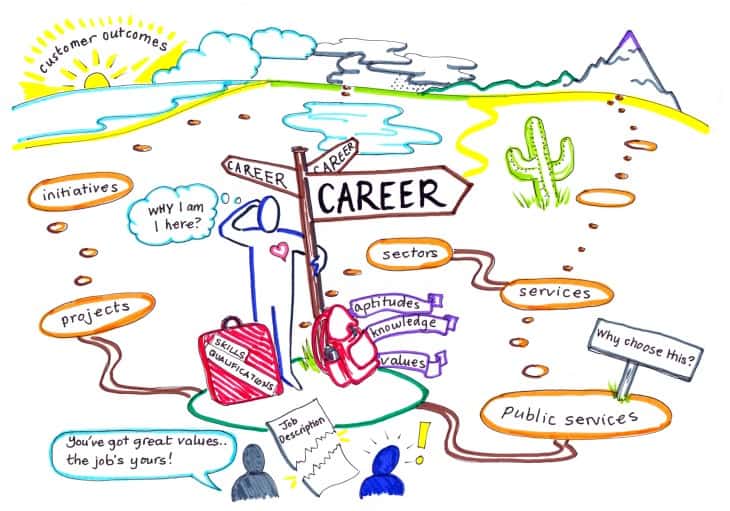 Customer outcomes
CAREER
CAREER
CAREER
initiatives
WHY I am
I here?
sectors
services
projects
aptitudes
knowledge
values
SKILLS
QUALIFICATIONS
Why choose this?
Public services
Job
Description
You've got great values..
the job's yours!
!